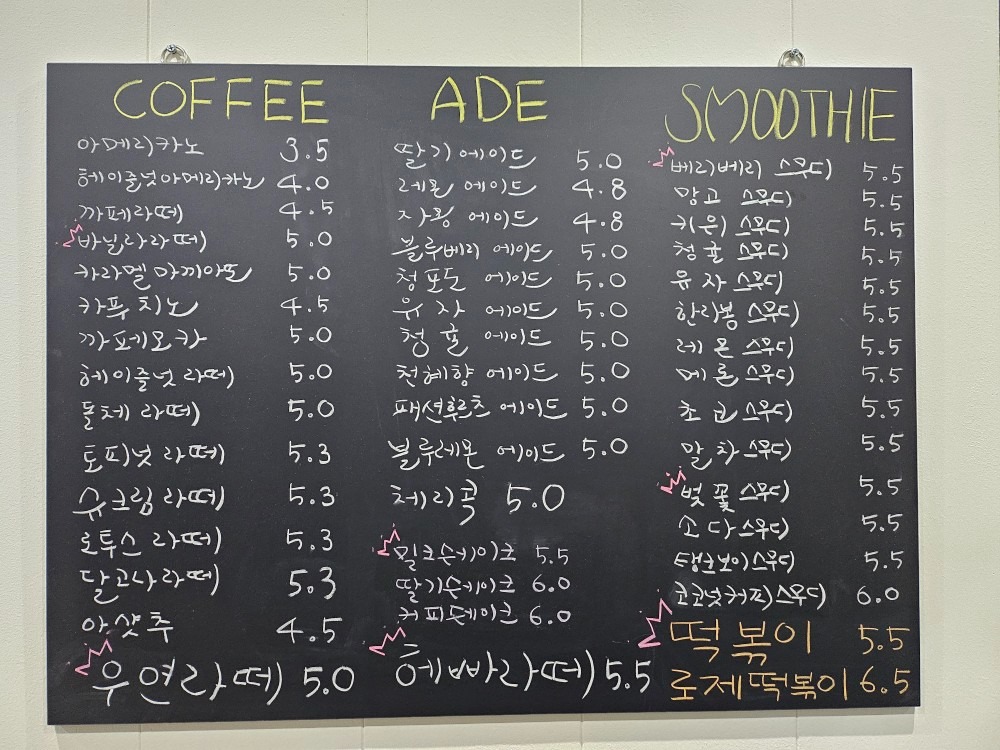 COFFEE
아메리카노 3.5
헤이즐넛아메리카노 4.0
까페라떼 4.5
바닐라라떼 5.0
카라멜 마끼아또 5.0
카푸치노 4.5
까페모카 5.0
헤이즐넛 라떼 5.0
돌체 라떼 5.0
토피넛 라떼 5.3
슈크림 라떼 5.3
로투스 라떼 5.3
달고나라떼 5.3
아샷추 4.5
우연라떼 5.0
ADE
딸기에이드 5.0
레몬 에이드 4.8
자몽 에이드 4.8
블루베리 에이드 5.0
청포도 에이드 5.0
유자 에이드 5.0
청귤 에이드 5.0
천혜향 에이드 5.0
패션후르츠 에이드 5.0
블루레몬 에이드 5.0
체리콕 5.0
밀크쉐이크 5.5
딸기쉐이크 6.0
커피쉐이크 6.0
헤빠라떼 5.5
SMOOTHIE
베리베리 스무디 5.5
망고 스무디 5.5
키위 스무디 5.5
청귤 스무디 5.5
유자 스무디 5.5
한라봉 스무디 5.5
레몬 스무디 5.5
메론 스무디 5.5
초코 스무디 5.5
말차 스무디 5.5
벚꽃 스무디 5.5
소다 스무디 5.5
탱크보이스무디 5.5
코코넛커피스무디 6.0
떡볶이 5.5
로제떡볶이 6.5